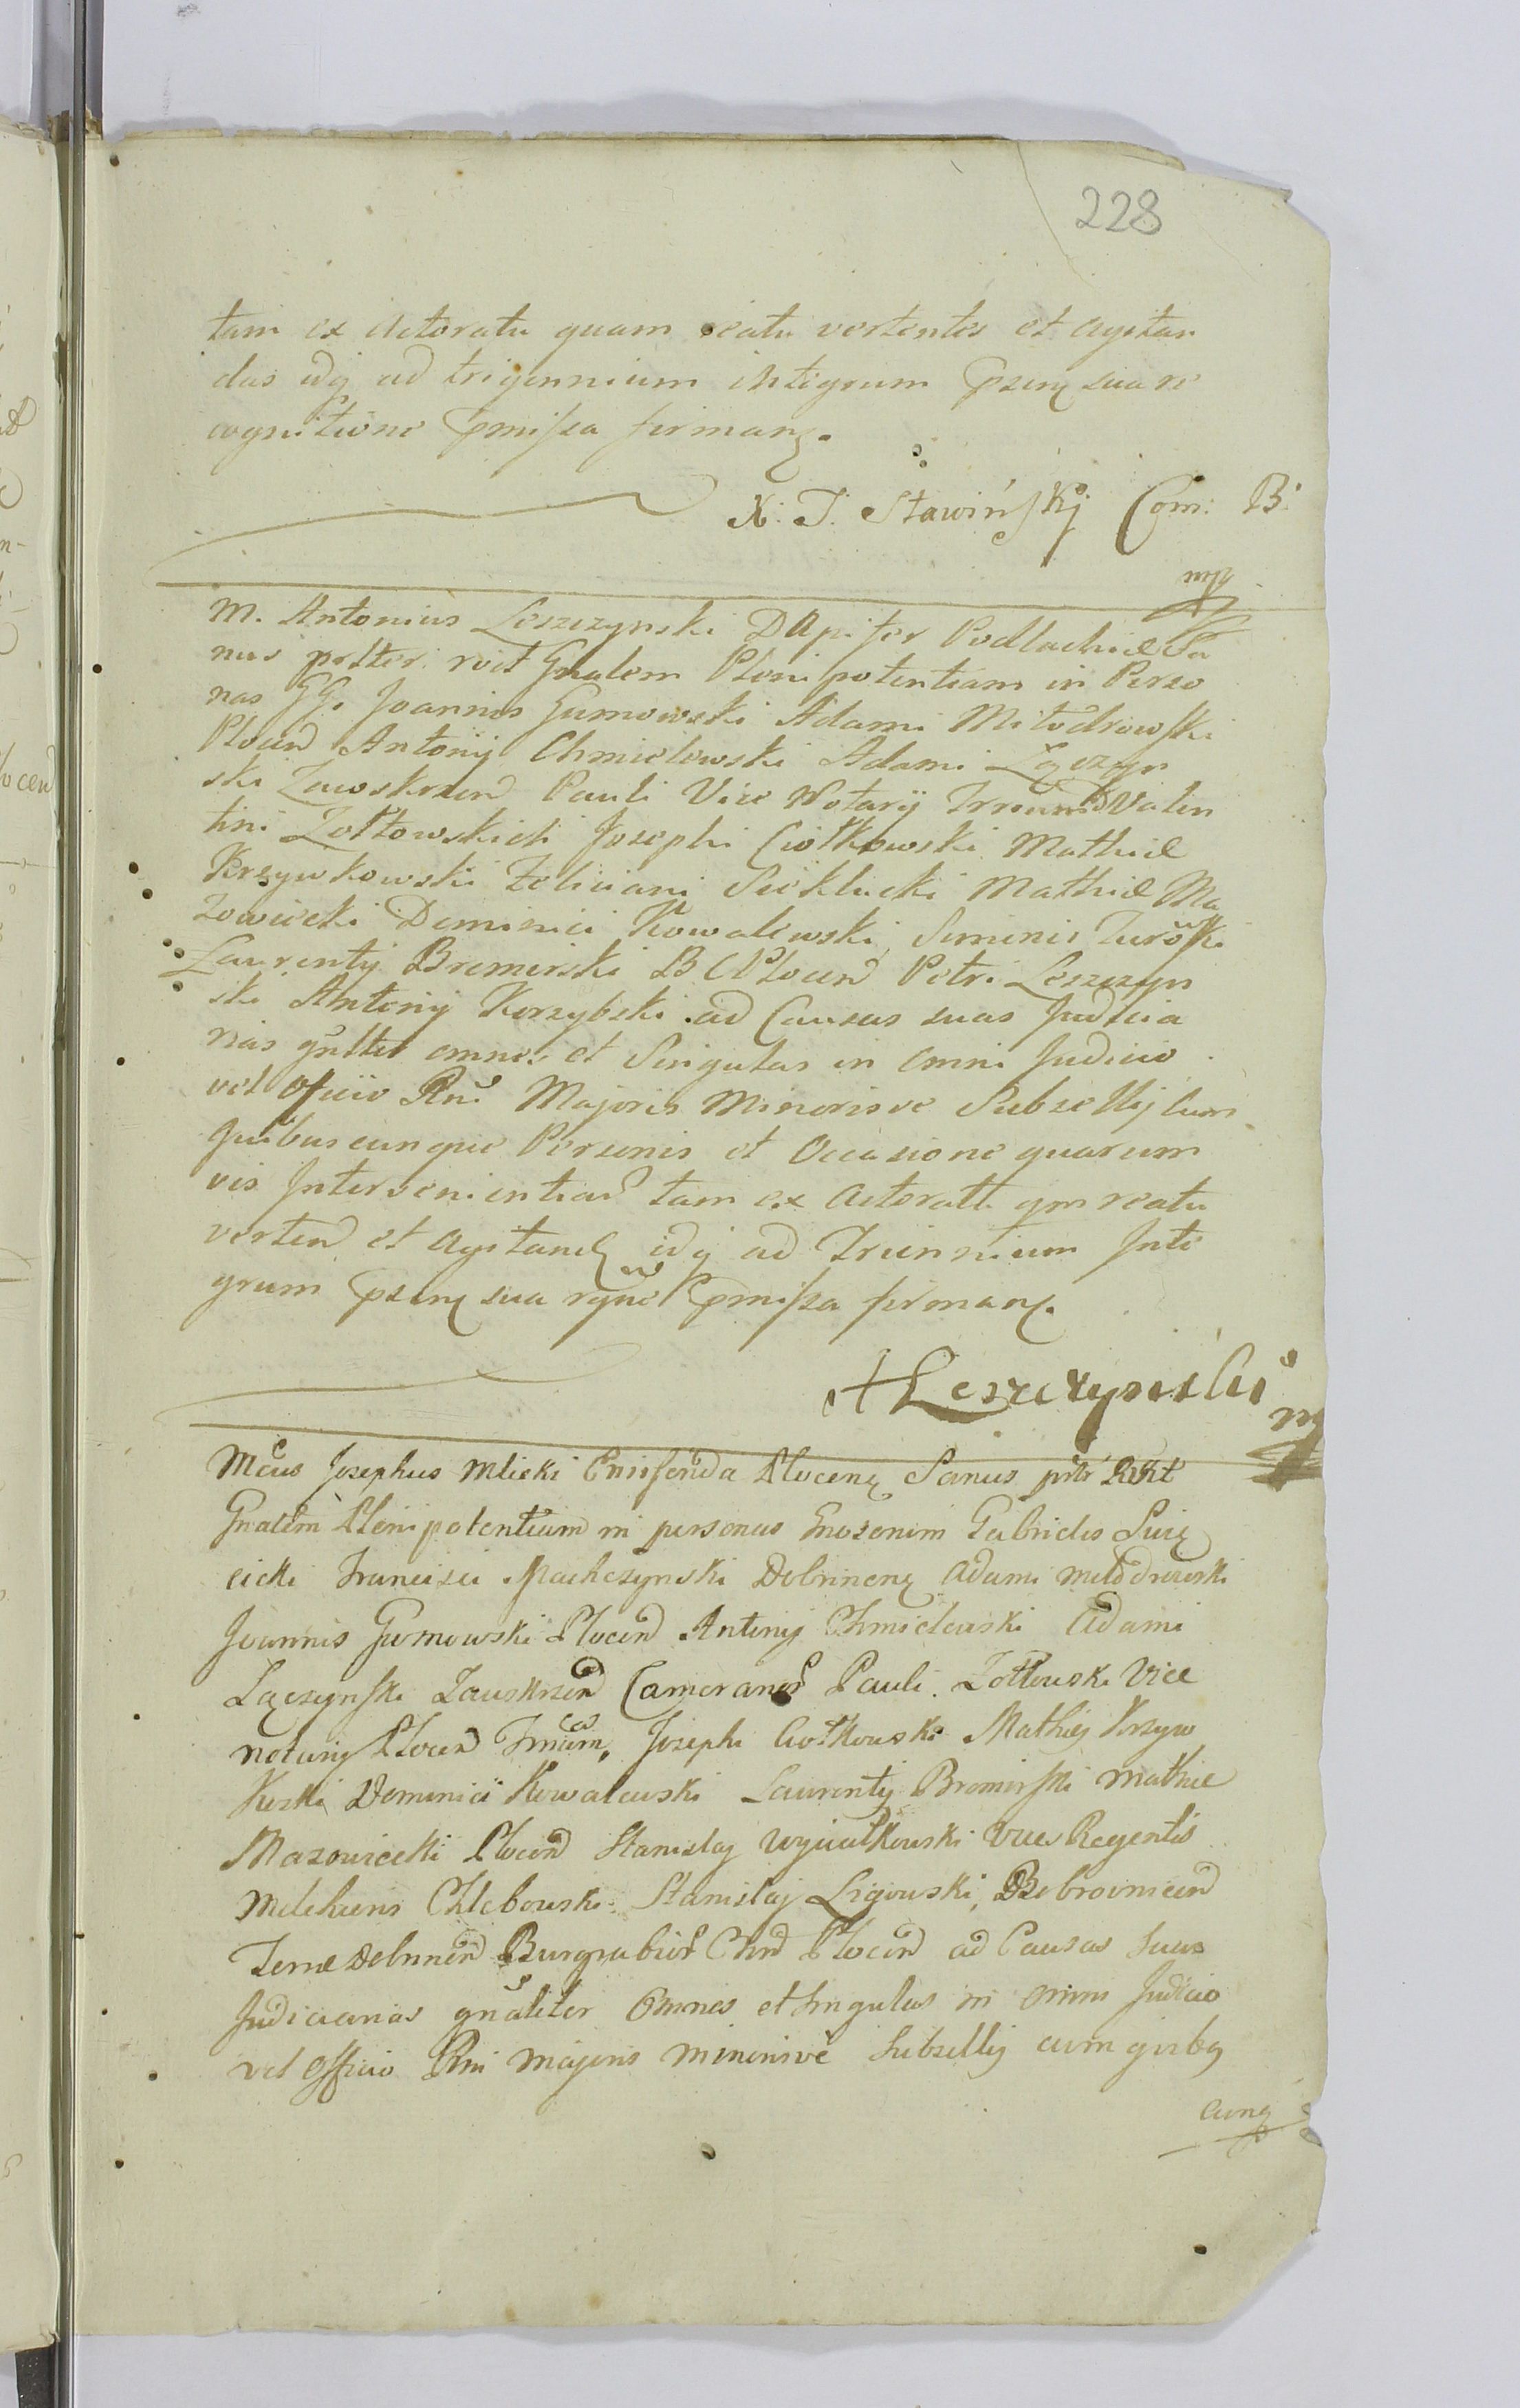 228
tam ex Actoratu quam reatu vertentes et agitan
das idq ad trigennium integrum pzenς sua re
cognitione pmissa firmanς.
X. J. Sławińskj Com: B:
mp
M. Antonius Leszczynski DApifer Podlachiæ Sa
nus potter. roit Gnalem Plenipotentiam in Perso
nas GG. Joannis Gumowski Adami Miłodrowski
Plocen Antonij Chmielewski Adami Łączyn
ski Zawskrzen Pauli Vice Notarij Valen
tini Zołtowskich Josephi Ciołkowski Mathiæ
Krzywkowski Feliciani Sieklucki Mathiæ Ma
zowiecki Dominici Kowalewski Simonis
Laurentij Bromirski B C Plocen Petri Leszczyn
ski Antonij Korzybski ad Causas suas Judicia
rias gnltter omnes et Singulas in Omni Judicio
vel Officio Rni Majoris Minorisve Subsellij Cum
quibuscunque Personis et Occasione quarum
vis Intervenientiar tam ex Actoratu qm reatu
verten et Agitand idq ad Triennium Inte
grum pzenς sua rgne pmissa firmanς.
A Leszczynski
mp
Mcus Josephus Mlicki Ensiferida Plocenς Sanus pttr
Gnalem Plenipotentiam in personas Gnosorum Gabrielis Świę
cicki Francisci Machczynski Dobrinenς Adami Miłodrowski
Joannis Gumowski Plocen Antonij Chmielewski Adami
Łączynski Zawskrzen Cameranor Pauli Zołtowski Vice
notarij Plocen Josephi Ciołkowski Mathiς Krzyw
koski Dominici Kowalewski Laurentij Bromirski Mathiæ
Mazowiecki Plocen Stanislaj Wyiutkowski Vices Regentis
Melchioris Chlebowski Stanislaj Ligowski, Bobrovnicen
Terræ Dobrinen Burgrabior Cstrn Plocen ad Causas Suas
Judiciarias gnaliter Omnes et Singulas in omni Judicio
vel officio Rni majoris minorisve Subsellij cum quibς
cunq